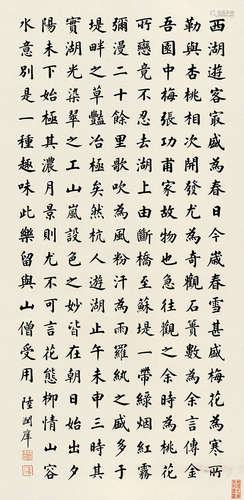 西湖遊客冣盛為春日今歲春雪甚盛梅花為寒所
勒與杏桃相次開發尤為奇觀石簣數為余言傅金
吾園中梅張功甫家故物也急往觀之余時為桃花
所戀竟不忍去湖上由斷橋至蘇堤一帶綠烟紅霧
彌漫二十餘里歌吹為風粉汗為雨羅紈之盛多于
堤畔之草豔冶極矣然杭人遊湖止午未申三時其
實湖光染翠之工山嵐設色之妙皆在朝日始出夕
陽未下始極其濃月景則尤不可言花態柳情山容
水意別是一種趣味此樂留與山僧受用 陸潤庠